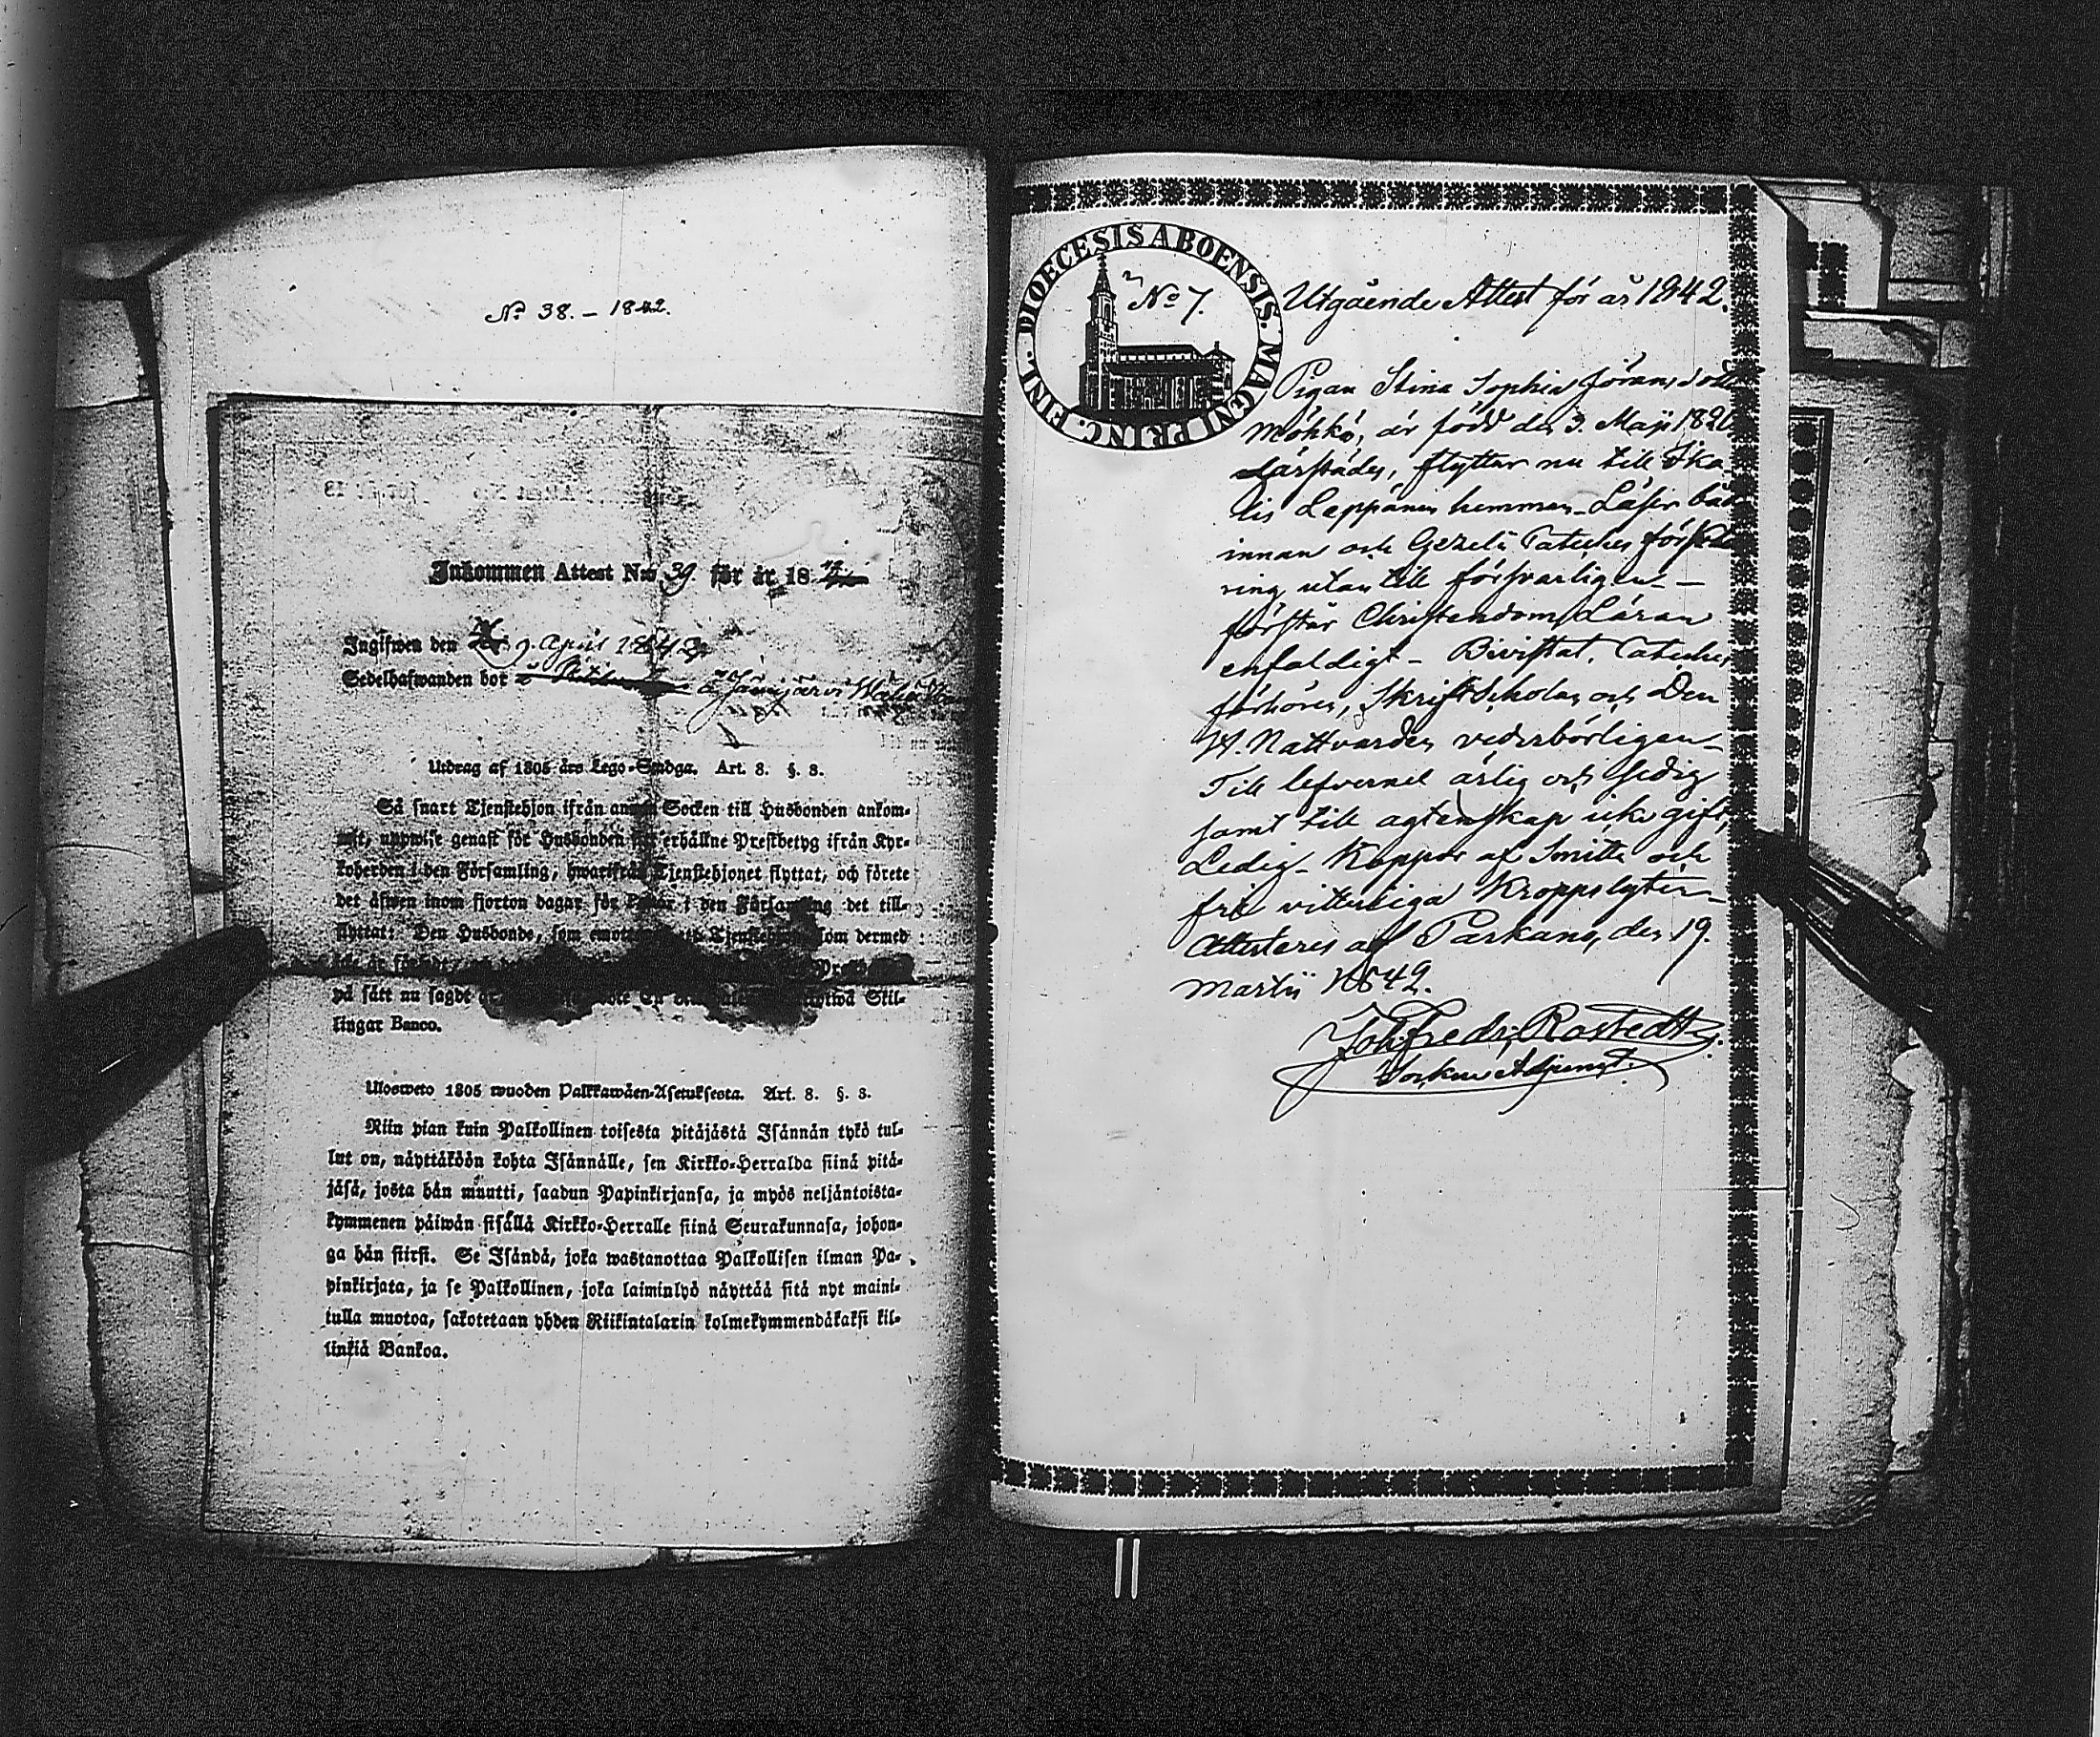 No 38. – 1842.
Inkommen Attest No 39. för år 18
Ingifwen den 9. April 1842
Sedelhafwanden bor i Jämijärvi
Utdrag af 1805 års Lego-Stadga. Art. 8. §. 3.
Så snart Tjenstehjon ifrån annan Socken till Husbonden ankom-
mit, uppwise genast för Husbonden erhållne Prestbetyg ifrån Kyr-
koherden i den Församling, hwarifrån Tjenstehjonet flyttat, och förete
det äfwen inom fjorton dagar för i den Församling det till-
flyttat: Den Husbonde, som Tjenstehjon som dermed
på sätt nu sagdt är Skil-
lingar Banco.
Ulosweto 1805 wuoden Palkkawäen-Asetuksesta. Art. 8. §. 3.
Niin pian kuin Palkollinen toisesta pitäjästä Isännän tykö tul-
lut on, näyttäköön kohta Isännälle, sen Kirkko-Herralda siinä pitä-
jäsä, josta hän muutti, saadun Papinkirjansa, ja myös neljäntoista-
kymmenen päiwän sisällä Kirkko-Herralle siinä Seurakunnasa, johon-
ga hän siirsi. Se Isändä, joka wastanottaa Palkollisen ilman Pa-
pinkirjata, ja se Palkollinen, joka laiminlyö näyttää sitä nyt maini-
tulla muotoa, sakotetaan yhden Riikintalarin kolmekymmendäkaksi kil-
linkiä Bankoa.
DIOECESIS ABOENSIS. MAGNI PRINC. FINL.
No 7. Utgående Attest för år 1842.
Pigan Stina Sophia Jöransdotter
Möhkö, är född den 3. Maji 182
därstädes, flyttar nu till Ika
lis Leppänen hemman – Läser
innan och Gezelii Cateches förkla
ring utantill försvarligen –
förstår Christendoms Läran
enfaldigt – Bivistat Cateches
förhören, Skriftscholan och Den
H. Nattvarden vederbörligen –
Till lefvernet ärlig och sedig
samt till ägtenskap icke gift,
Ledig – Koppor af Smitta och
fri vitterliga Kroppslyten –
Attesteras af Parkano, den 19.
Martii 1842.
Joh. Fredr. Rostedt
Sockne Adjunct.